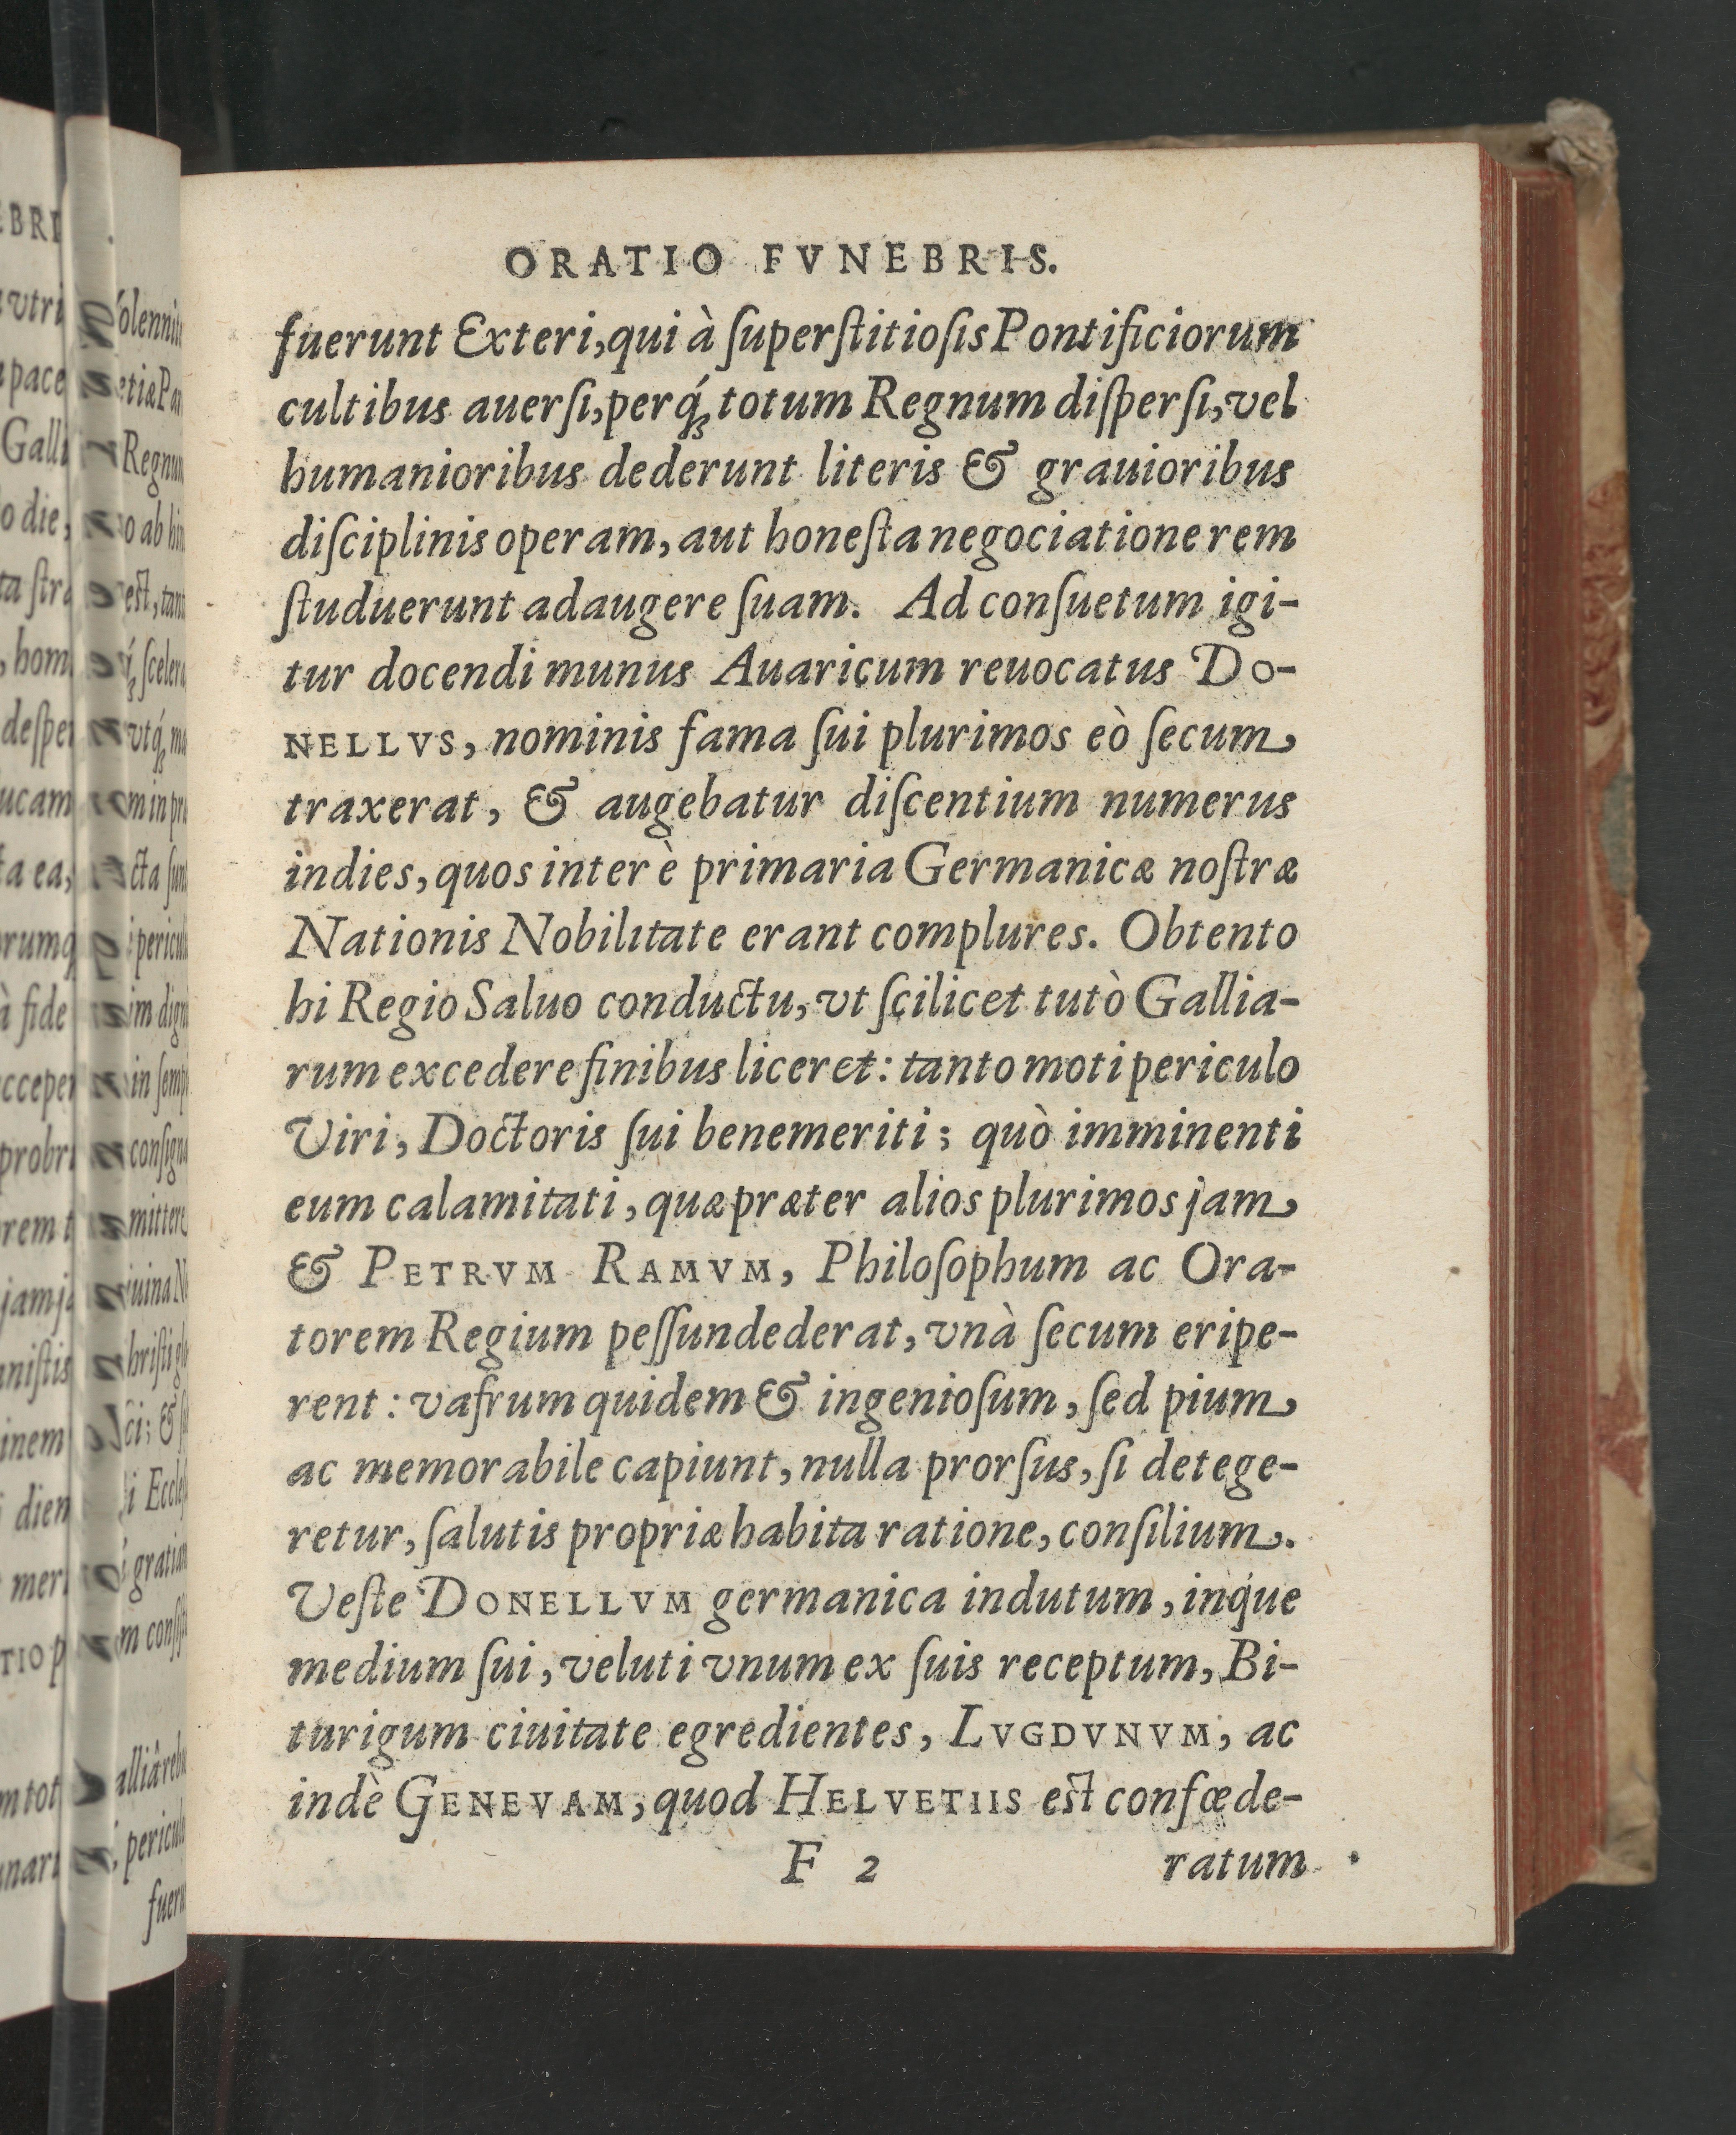 ORATIO FVNEBRIS.
fuerunt Exteri, qui à ſuperſtitioſis Pontificiorum
cultibus auerſi, perq́ꝫ totum Regnum diſperſi, vel
humanioribus dederunt literis & grauioribus
diſciplinis operam, aut honeſta negociatione rem
ſtuduerunt adaugere ſuam. Ad conſuetum igi-
tur docendi munus Auaricum reuocatus Do-
NELLVS, nominis fama ſui plurimos eò ſecum
traxerat, & augebatur diſcentium numerus
indies, quos inter è primaria Germanicæ noſtræ
Nationis Nobilitate erant complures. Obtento
hi Regio Saluo conductu, vt ſcilicet tutò Gallia-
rum excedere finibus liceret: tanto moti periculo
Viri, Doctoris ſui benemeriti; quò imminenti
eum calamitati, quæ præter alios plurimos jam
& PETRVM RAMVM, Philoſophum ac Ora-
torem Regium peſſundederat, vnà ſecum eripe-
rent: vafrum quidem & ingenioſum, ſed pium
ac memorabile capiunt, nulla prorſus, ſi detege-
retur, ſalutis propriæ habita ratione, conſilium.
Veſte DONELLVM germanica indutum, inq́ue
medium ſui, veluti vnum ex ſuis receptum, Bi-
turigum ciuitate egredientes, LVGDVNVM, ac
indè GENEVAM, quod HELVETIIS eſt confœde-
F 2 ratum